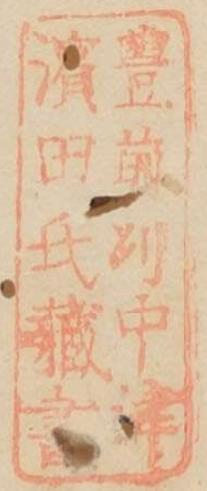 豊前州中津
濱田氏藏書